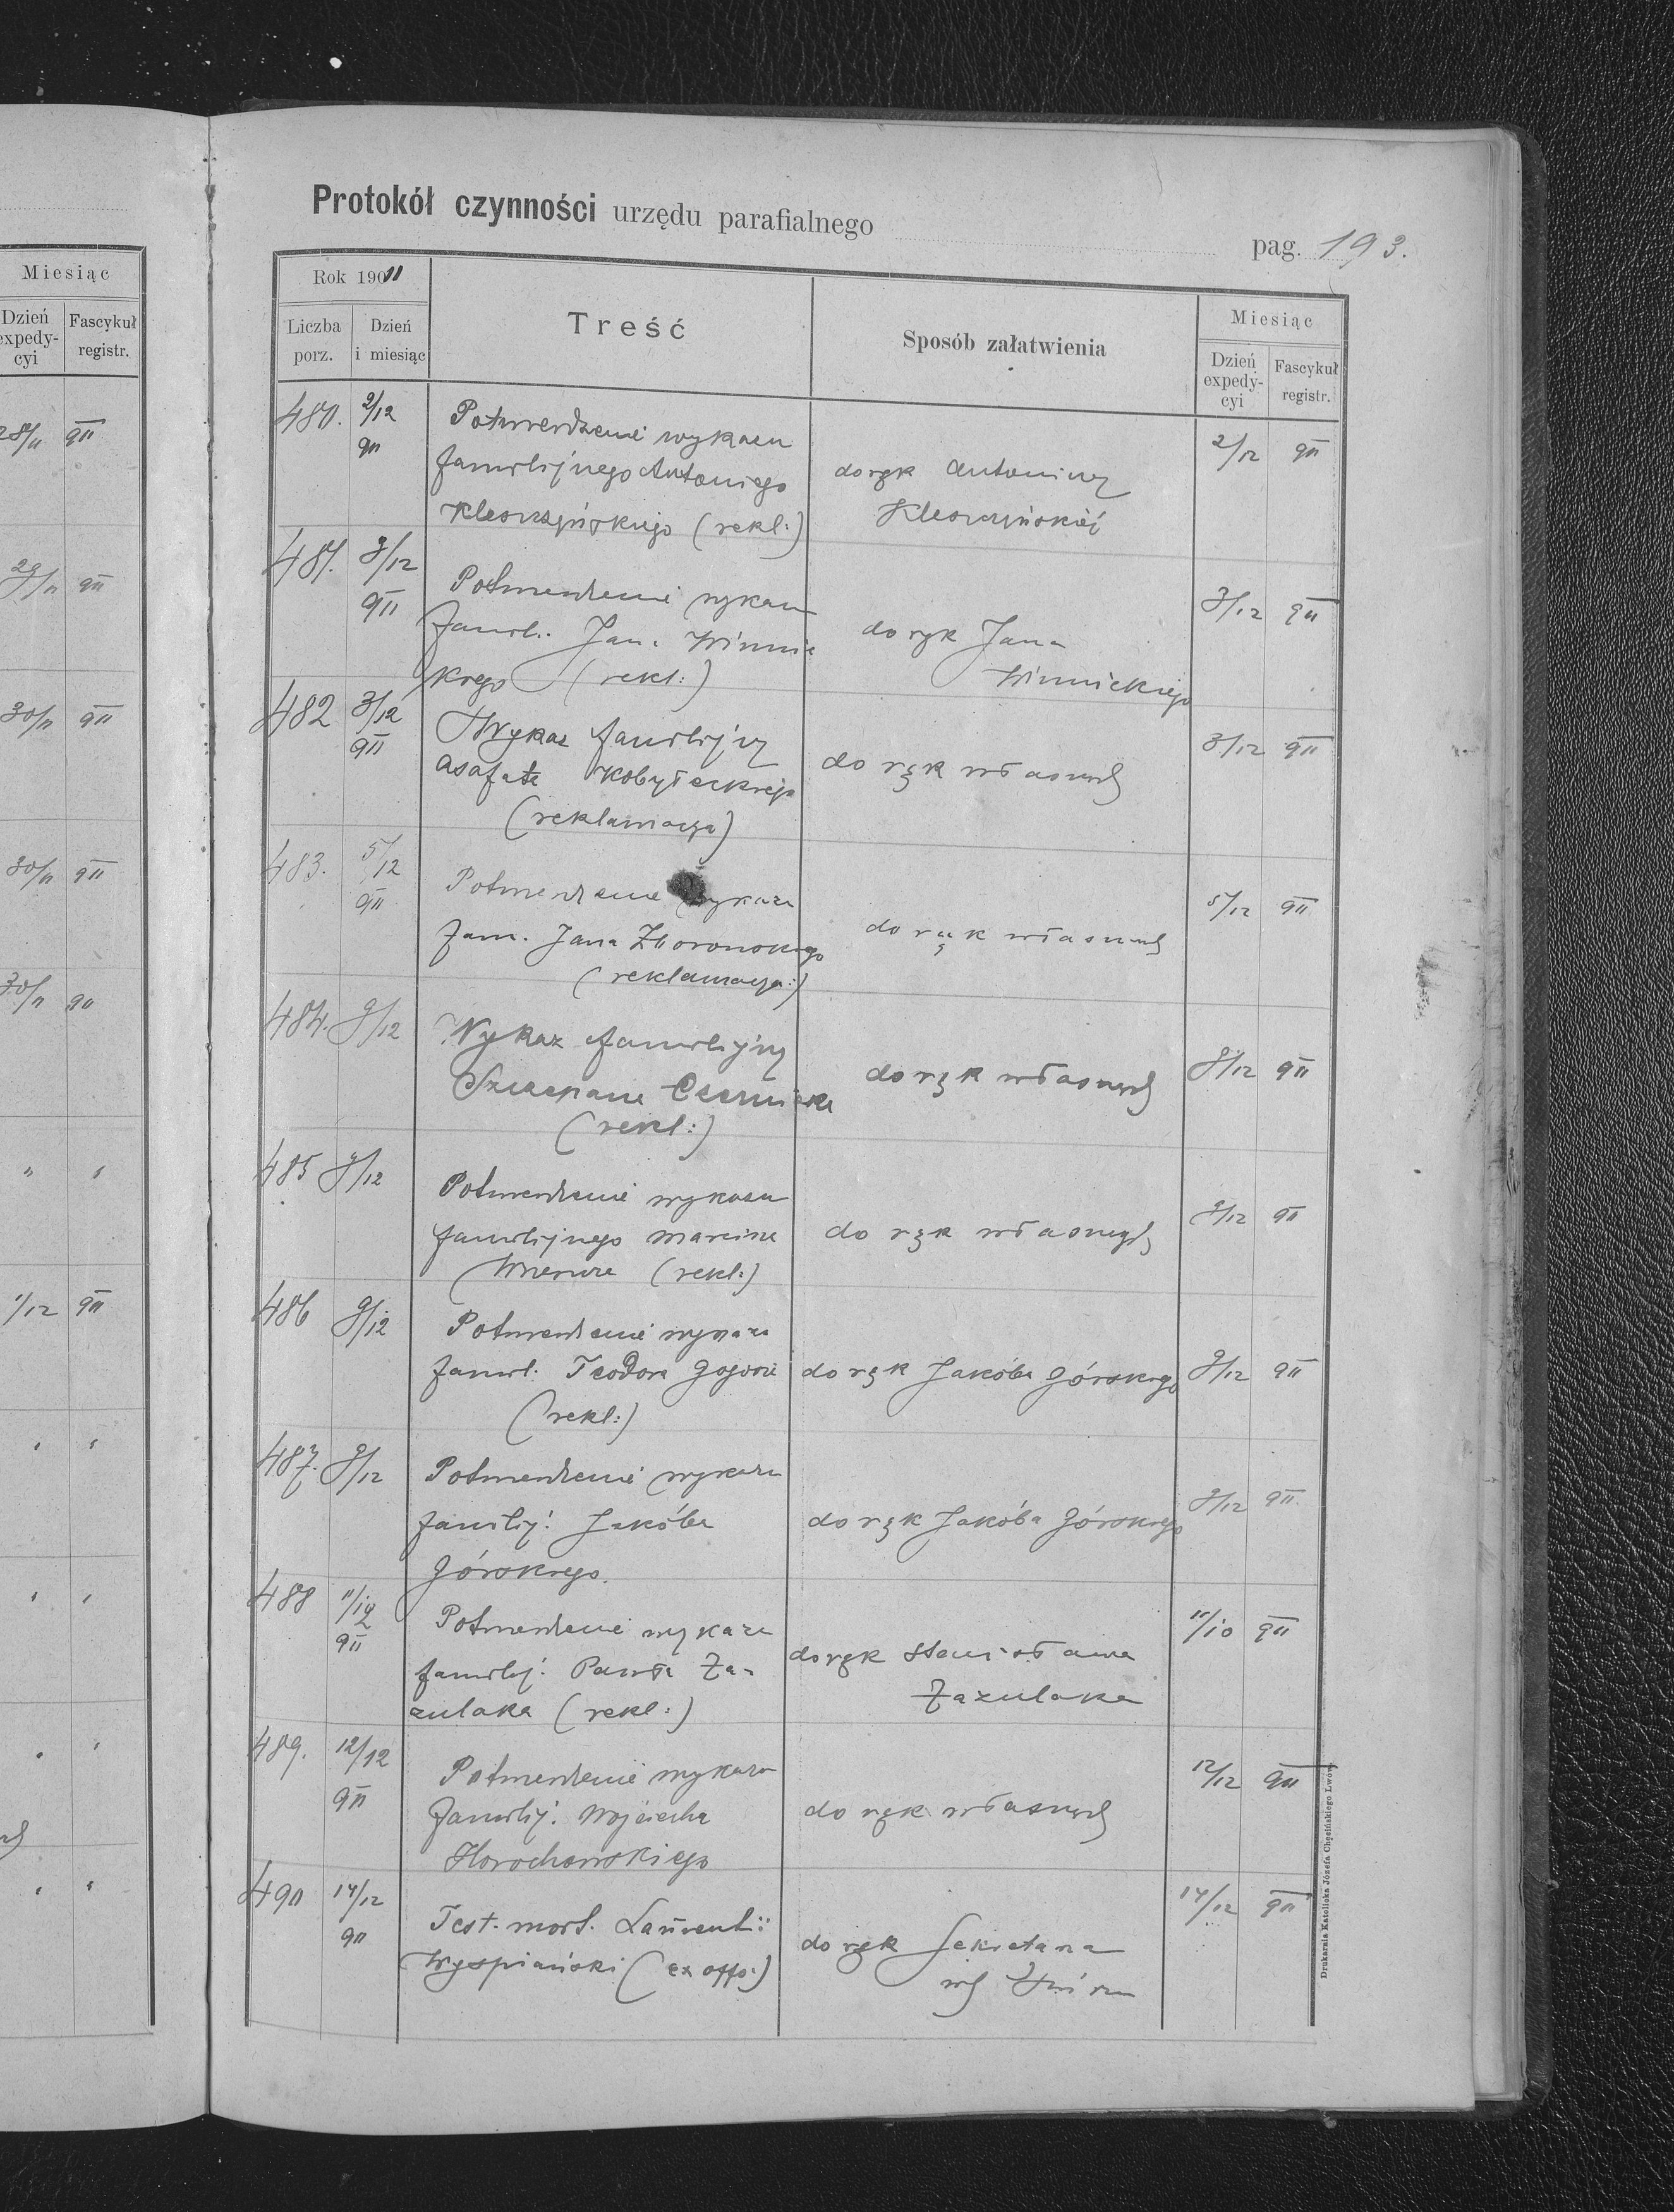 Miesiąc
Dzień expedycyi
Fascykuł registr.
28/11 911
29/11 911
30/11 911
30/11 911
30/11 911
" "
1/12 911
" "
" "
" "
" "
Protokół czynności urzędu parafialnego
pag. 193.
Rok 1911
Liczba porz.
Dzień i miesiąc
Treść
Sposób załatwienia
Miesiąc
Dzień expedycyi
Fascykuł registr.
480. 2/12 911
Potwierdzenie wykazu
familijnego Antoniego
Kleszczyńskiego (rekl:)
do rąk Antoniny
Kleszczyńskiej
2/12 911
481. 3/12 911
Potwierdzenie wykazu
famil.: Jana Winnic
kiego (rekl:)
do rąk Jana
Winnickiego
3/12 911
482 3/12 911
Wykaz familijny
Asafata Kobyłeckiego
(reklamacya)
do rąk własnych
3/12 911
483. 5/12 911
Potwierdzenie wykazu
fam. Jana
(reklamacya:)
do rąk własnych
5/12 911
484. 9/12
Wykaz familijny
Szczepana
(rekl:)
do rąk własnych
9/12 911
485 9/12
Potwierdzenie wykazu
familijnego Marcina
(rekl:)
do rąk własnych
9/12 911
486 9/12
Potwierdzenie wykazu
famil: Teodora
(rekl:)
do rąk Jakóba Górskiego
9/12 911
487. 9/12
Potwierdzenie wykazu
familij: Jakóba
Górskiego.
do rąk Jakóba Górskiego
9/12 911.
488 11/12 911
Potwierdzenie wykazu
familij: Pawła Za-
zulaka (rekl:)
do rąk Stanisława
Zazulaka
11/10 911
489. 12/12 911
Potwierdzenie wykazu
familij: Wojciecha
Horochowskiego
do rąk własnych
12/12 911
490 14/12 911
Test. mort. Laurentii
Wyspiański (ex offo:)
do rąk Sekretarza
14/12 911
Drukarnia Katolicka Józefa Chęcińskiego Lwów.